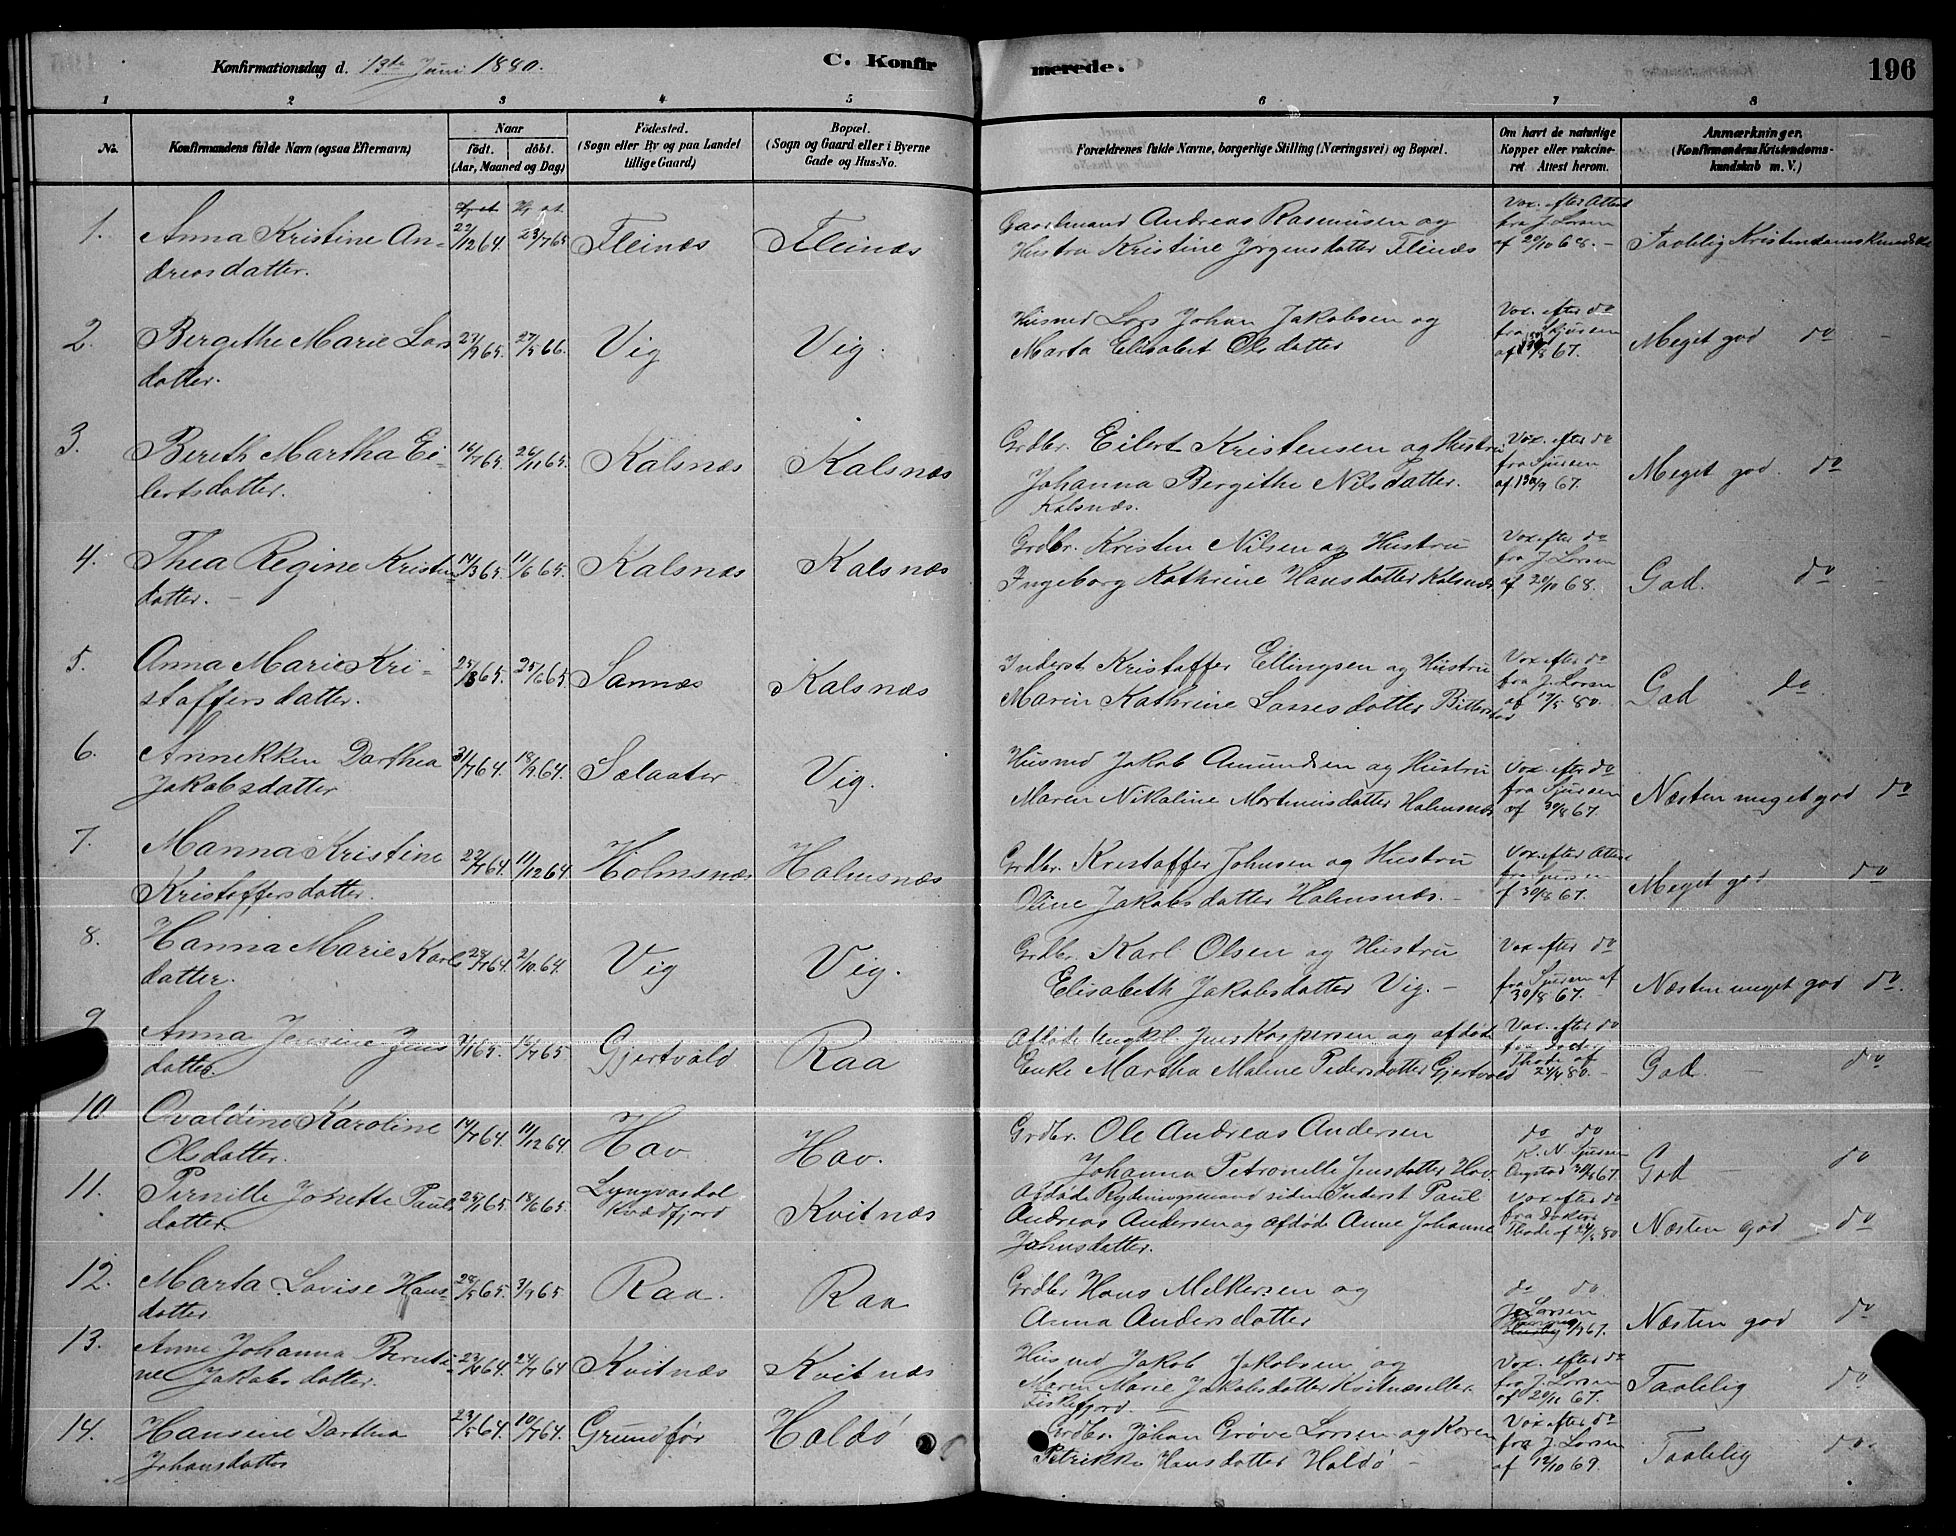 Konfirmationsdag d. 13de Juni 1880.
C. Konfirmerede.
196
1 2 3 4 5 6 7 8
No.
Konfirmandens fulde Navn (ogsaa Efternavn)
Naar
födt. döbt.
(Aar, Maaned og Dag)
Födested.
(Sogn eller By og paa Landet
tillige Gaard)
Bopæl.
(Sogn og Gaard eller i Byerne
Gade og Hus-No.
Forældrenes fulde Navne, borgerlige Stilling (Næringsvei) og Bopæl.
Om havt de naturlige
Kopper eller vakcine-
ret Attest herom.
Anmærkninger.
(Konfirmandens Kristendoms-
kundskab m. V.)
1. Anna Kristine An-
dreasdatter.
22/12 64. 23/7 65
Fleinæs
Fleinæs
Gaardmand Andreas Rasmusen og
Hustru Kristine Jørgensdatter Fleinæs
Vax. efter Attest
fra J. Larsen
af 20/10 68. -
Taalelig Kristendomskundskab
2. Bergithe Marie Lars
datter.
27/9 65. 27/5 66.
Vig
Vig.
Husmd Lars Johan Jakobsen og
Marta Elisabet Olsdatter
Vax. efter do
fra Sjursen
67.
Meget god do -
3. Bereth Martha Ei-
lertsdatter.
16/7 65. 26/11 65.
Kalsnæs
Kalsnæs
Grdbr. Eilert Kristensen og Hustru
Johanna Bergithe Nilsdatter.
Kalsnæs.
Vax. efter do
fra Sjursen
67.
Meget god. do
4. Thea Regine Kristens
datter. -
14/3 65. 11/6 65.
Kalsnæs
Kalsnæs
Grdbr. Kristen Nilsen og Hustru
Ingeborg Kathrine Hansdatter Kalsnæs
Vax. efter do
fra J. Larsen
af 20/10 68.
God. do -
5. Anna Marie Kri-
stoffersdatter.
25/3 65. 25/6 65
Sannæs
Kalsnæs
Inderst Kristoffer Ellingsen og Hustru
Maren Kathrine Lassesdatter
Vax efter do
fra J. Larsen
af 17/5 80.
God do
6. Annekken Darthea
Jakobsdatter
31/7 64. 18/9 64.
Sælaater
Vig.
Husmd Jakob Amundsen og Hustru
Maren Nikoline Mortensdatter Holmsnæs
Vax. efter do
fra Sjursen
af 30/8 67.
Næsten meget god do
7. Manna Kristine
Kristoffersdatter.
22/7 64. 11/12 64
Holmsnæs
Holmsnæs
Grdbr. Kristoffer Johnsen og Hustru
Oline Jakobsdatter Holmsnæs. -
Vax efter Attest
fra Sjursen
af 30/8 67.
Meget god do
8. Hanna Marie Karls
datter.
28/7 64. 2/10 64.
Vig
Vig.
Grdbr. Karl Olsen og Hustru
Elisabeth Jakobsdatter Vig. -
Vax efter do
fra Sjursen af
30/8 67.
Næsten meget god do.
9. Anna Jensine Jens
datter.
65. 16/7 65
Gjertvold
Raa
Afdøde Ungkl. Jens Kaspersen og afdøde
Enke Martha Maline Pedersdatter Gjertvold
Vax. efter do
Thode af
24/4 80. -
God. - do
10. Ovaldine Karoline
Olsdatter.
14/7 64. 11/12 64.
Hav
Hav.
Grdbr. Ole Andreas Andersen
Johanna Petronelle Jensdatter Hav.
do do
K. N. Sjursen
67.
God - do
11. Pernille Johette Pauls
datter
25/1 65. 18/6 65.
Lyngvasdal
Kvædfjord
Kvitnæs
Afdøde Rydningsmand siden Inderst Paul
Andreas Andersen og afdøde Anne Johanne
Johnsdatter.
Vax efter do
fra Doktor
Thode af 80
Næsten god do
12. Marta Lovise Hans-
datter
28/5 65. 3/9 65
Raa.
Raa
Grdbr Hans Melkersen og
Anna Andersdatter
do do.
Larsen
67.
Næsten god do
13. Anne Johanna Bernti-
ne Jakobsdatter.
64 24/7 64
Kvitnæs
Kvitnæs
Husmd Jakob Jakobsen og
Maren Marie Jakobsdatter Kvitnæs eller
Fiskefjord. -
Vax. efter do
fra J. Larsen
af 20/11 67.
Taalelig do
14. Hansine Darthea
Johansdatter
23/5 64. 10/7 64.
Grundfør
Haldø
Grdbr. Johan Grøve Larsen og Karen
Petrikke Hansdatter Haldø -
Vax efter do
fra J. Larsen
af 12/10 69.
Taalelig do.